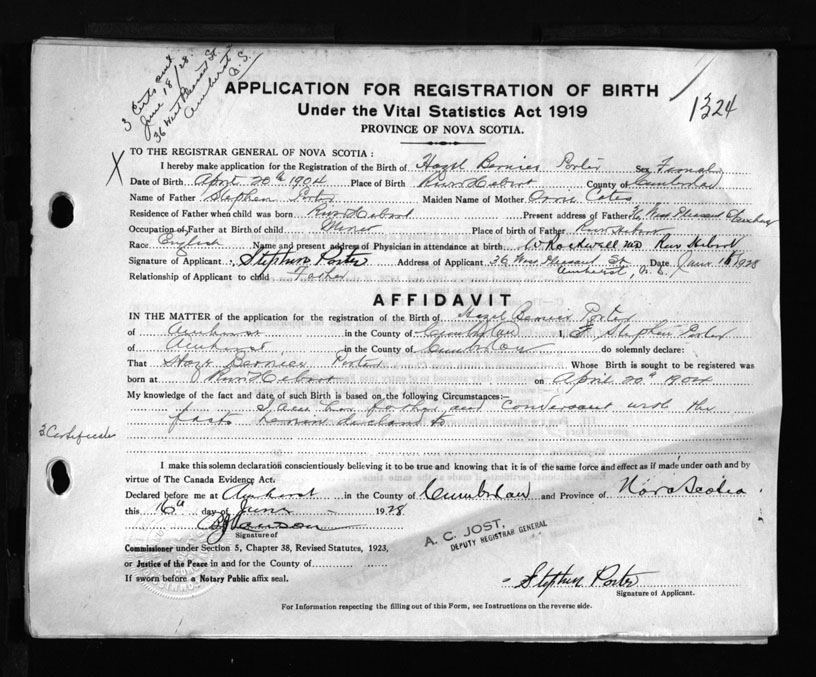 3 Certs sent
June 18/28
36 West Pleasant St
Amherst
N.S.
APPLICATION FOR REGISTRATION OF BIRTH
1324
Under the Vital Statistics Act 1919
PROVINCE OF NOVA SCOTIA.
X
TO THE REGISTRAR GENERAL OF NOVA SCOTIA :
I hereby make application for the Registration of the Birth of Hazel Bernice Porter Sex Female
Date of Birth April 20th 1904 Place of Birth River Hebert County of Cumberland
Name of Father Stephen Porter Maiden Name of Mother Annie
Residence of Father when child was born River Hebert Present address of Father 36 West Pleasant Amherst
Occupation of Father at Birth of child Miner Place of birth of Father River Hebert
Race English Name and present address of Physician in attendance at birth Rockwell MD River Hebert
Signature of Applicant Stephen Porter Address of Applicant 36 West Pleasant St Date June 16 1928
Amherst, N.S.
Relationship of Applicant to child Father
AFFIDAVIT
IN THE MATTER of the application for the registration of the Birth of Hazel Bernice Porter
of Amherst in the County of Cumberland I, Stephen Porter
of Amherst in the County of Cumberland do solemnly declare:
That Hazel Bernice Porter Whose Birth is sought to be registered was
born at River Hebert on April 20th 1904
My knowledge of the fact and date of such Birth is based on the following Circumstances:
I am her father and conversant with the
facts herein declared to
3 Certificates
I make this solemn declaration conscientiously believing it to be true and knowing that it is of the same force and effect as if made under oath and by
virtue of The Canada Evidence Act.
Declared before me at Amherst in the County of Cumberland and Province of Nova Scotia
this 16th day of June 1928
Signature of
A. C. JOST,
DEPUTY REGISTRAR GENERAL
Commissioner under Section 5, Chapter 38, Revised Statutes, 1923,
or Justice of the Peace in and for the County of
If sworn before a Notary Public affix seal.
Stephen Porter
Signature of Applicant.
For Information respecting the filling out of this Form, see Instructions on the reverse side.